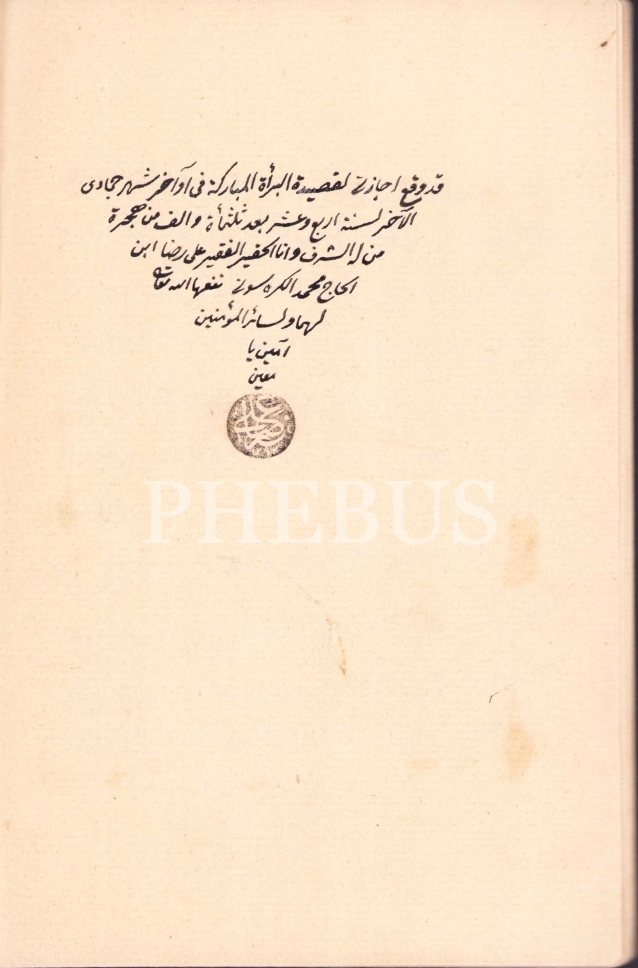 قد وقع اجازتى لقصيدة البرأة المباركة فى آواخر شهر جمادى
الآخر لسنة اربع وعشر بعد ثلثمأة والف من هجرة
من له الشرف وانا الحقير الفقير على رضا ابن
الحاج محمد الكره سوى الله تعالى
لهما ولسائر المؤمنين
آمين يا
معين
PHEBUS